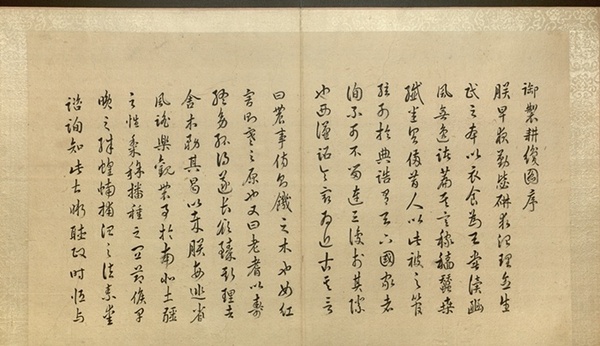 御製耕織圖序
朕早夜勤毖研求治理念生
民之本以衣食為天嘗讀豳
風無逸諸篇其言稼穡蠶桑
纖悉具備昔人以此被之管
絃列於典誥有天下國家者
洵不可不留連三復於其際
也西漢詔令最為近古其言
曰農事傷則饑之本也女紅
害則寒之原也又曰老者以壽
終幼孤得遂長欲臻斯理者
舍本務其曷以哉朕每巡省
風謠樂觀農事於南北土疆
之性黍稌播種之宜節候早
晚之殊蝗蝻捕治之法素愛
諮詢知此甚晰聽政時恒與